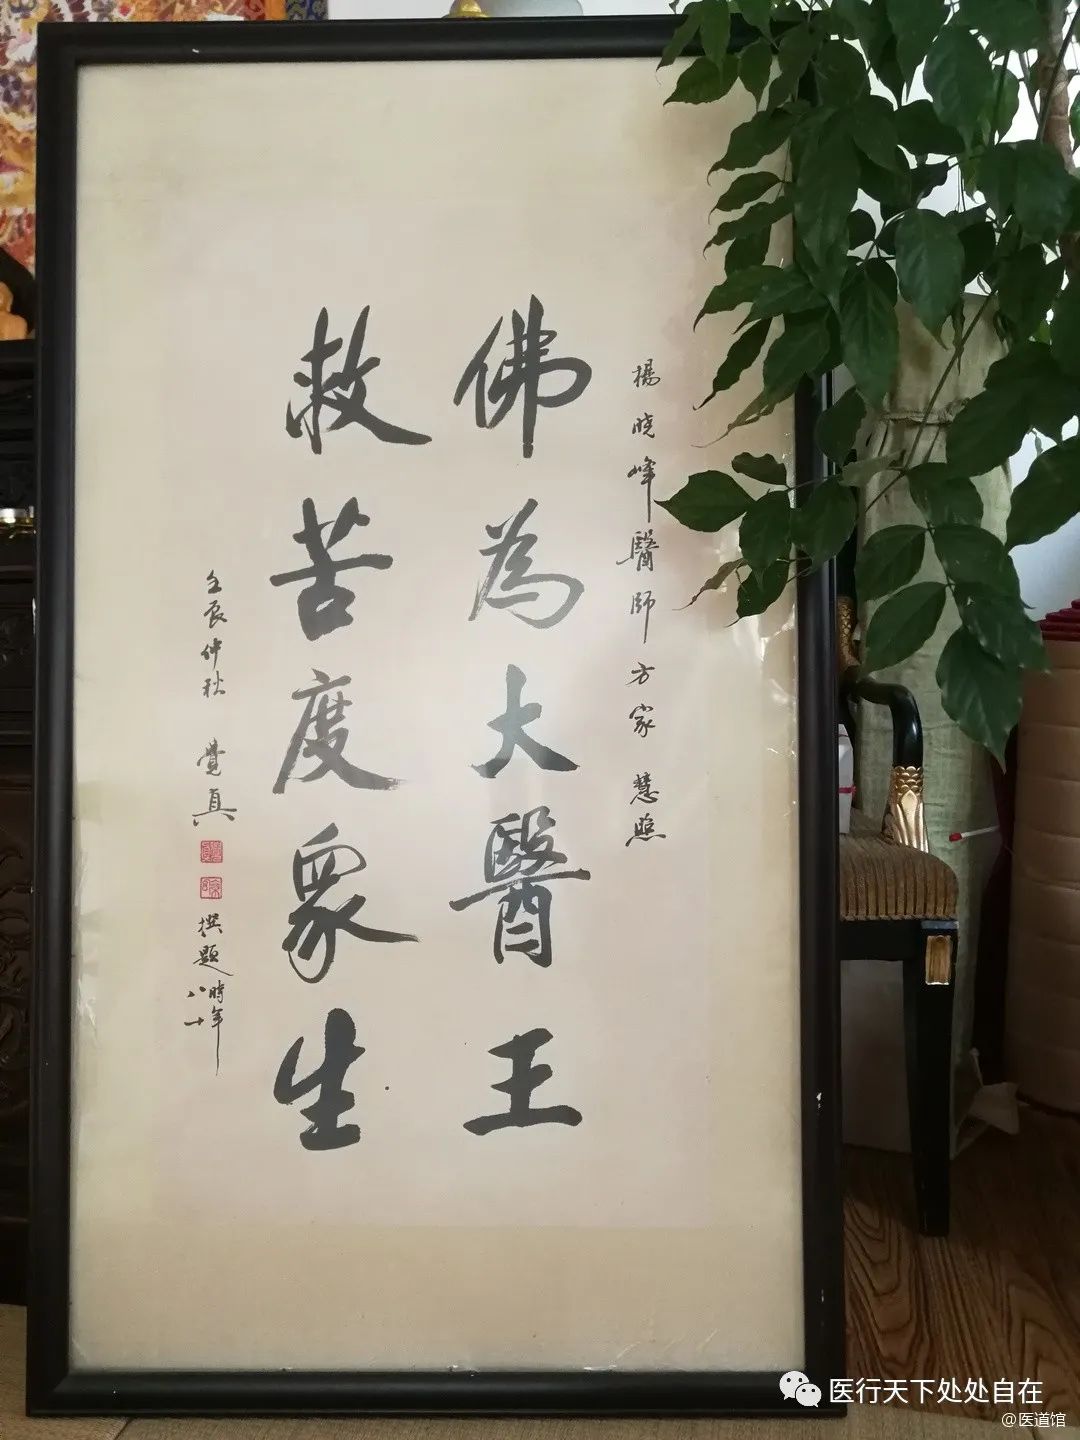 楊晓峰醫師方家 慧照
佛為大醫王
救苦度眾生
壬辰仲秋 覺真
撰題 時年
八十
医行天下处处自在
@医道馆